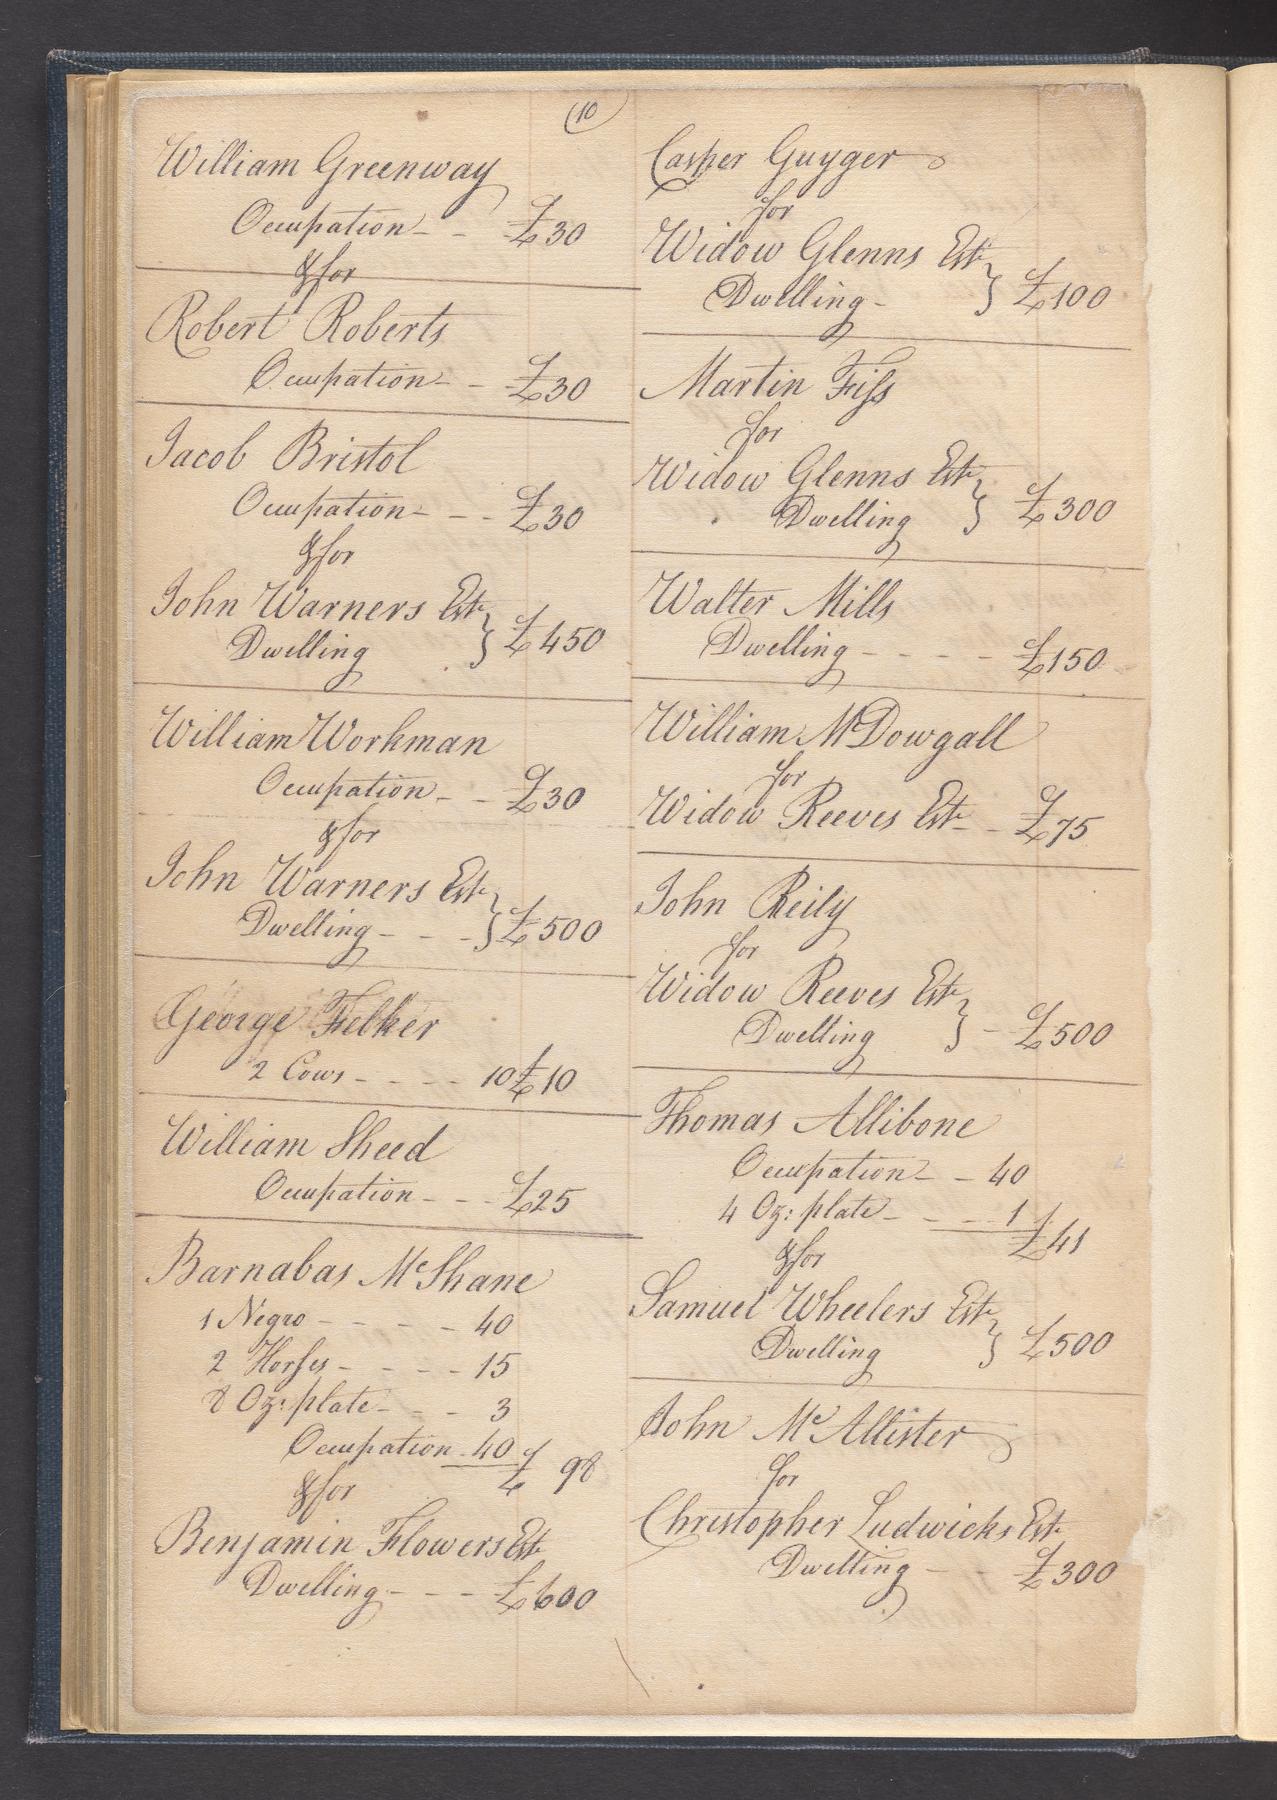 (10)
William Greenway
Occupation - - £30
& for
Robert Roberts
Occupation - - £30
Jacob Bristol
Occupation - - - £30
& for
John Warners Est.
Dwelling } £450
William Workman
Occupation - - £30
& for
John Warners Est.
Dwelling - - - } £500
George Felker
2 Cows - - - - 10 £10
William Sheed
Occupation - - - £25
Barnabas McShane
1 Negro - - - - 40
2 Horses - - - - 15
8 Oz: plate - - - 3
Occupation 40 £ 98
& for
Benjamin Flowers Est.
Dwelling - - - £600
Casper Guyger
for
Widow Glenns Est.
Dwelling - } £100
Martin Fiss
for
Widow Glenns Est.
Dwelling } £300
Walter Mills
Dwelling - - - - £150
William McDowgall
for
Widow Reeves Est. - £75
John Reily
for
Widow Reeves Est.
Dwelling } - £500
Thomas Allibone
Occupation - - 40
4 Oz: plate - - - - 1
£41
& for
Samuel Wheelers Est.
Dwelling } £500
John McAllister
for
Christopher Ludwicks Est.
Dwelling - - £300